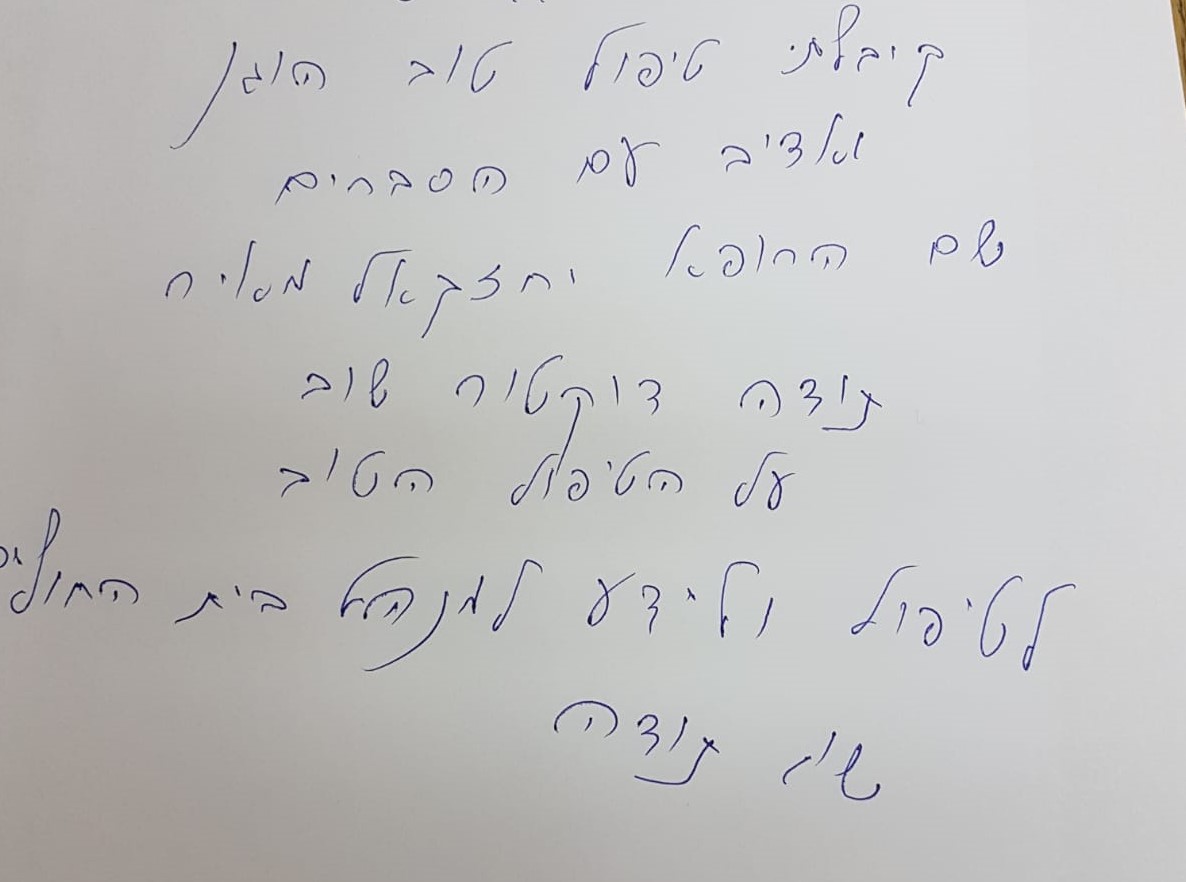 קיבלתי טיפול טוב הוגן
ואדיב עם הסברים
שם הרופא יחזקאל מאיר
תודה דוקטור שוב
על הטיפול הטוב
לטיפול ולידע למנהל בית החולים
שוב תודה